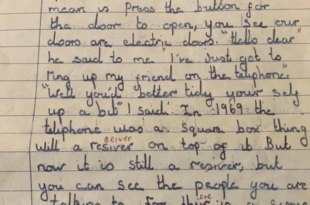 mean is Press the button for
the door to open, you see our
doors are electric doors. "Hello dear"
he said to me "I've just got to
ring up my friend on the telephone."
"Well you'd better tidy your self
up a bit" I said. In 1969 the
telephone was a square box thing
with a resiver on top of it But
now it is still a resiver, but
you can see the people you are